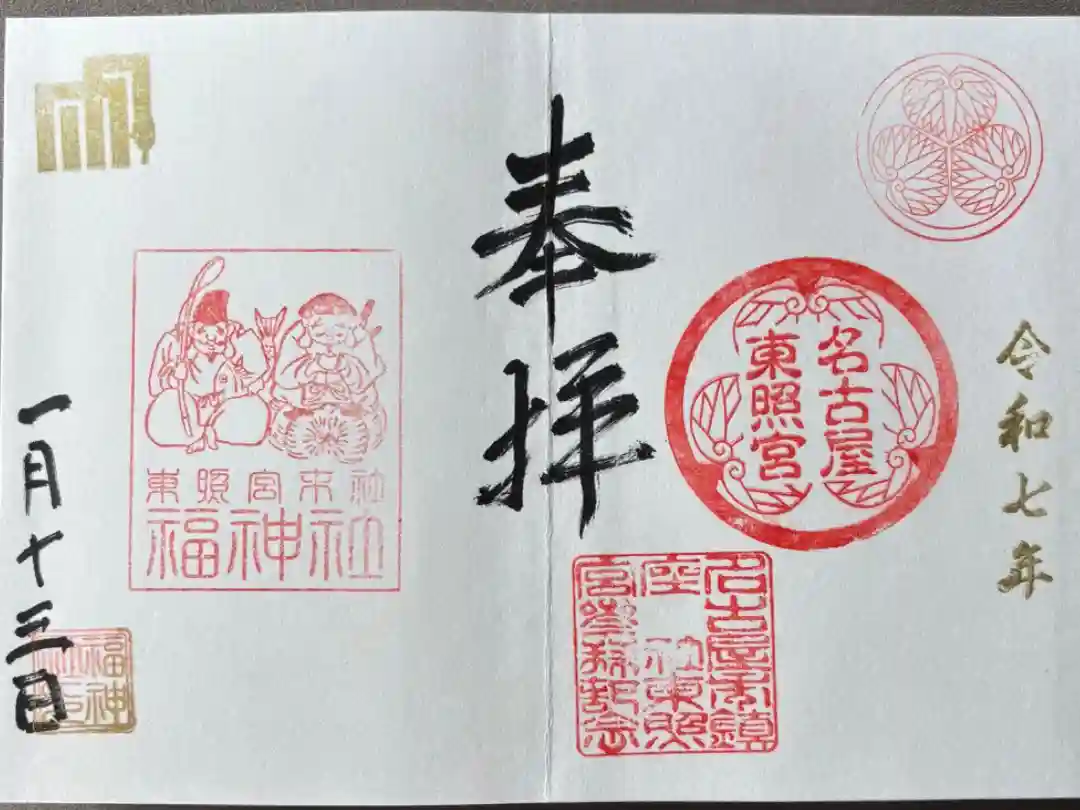 令和七年
名古屋
東照宮
名古屋市鎮
座 社東照
宮參拜記念
奉拝
東照宮末社
福神社
一月十三日
福神